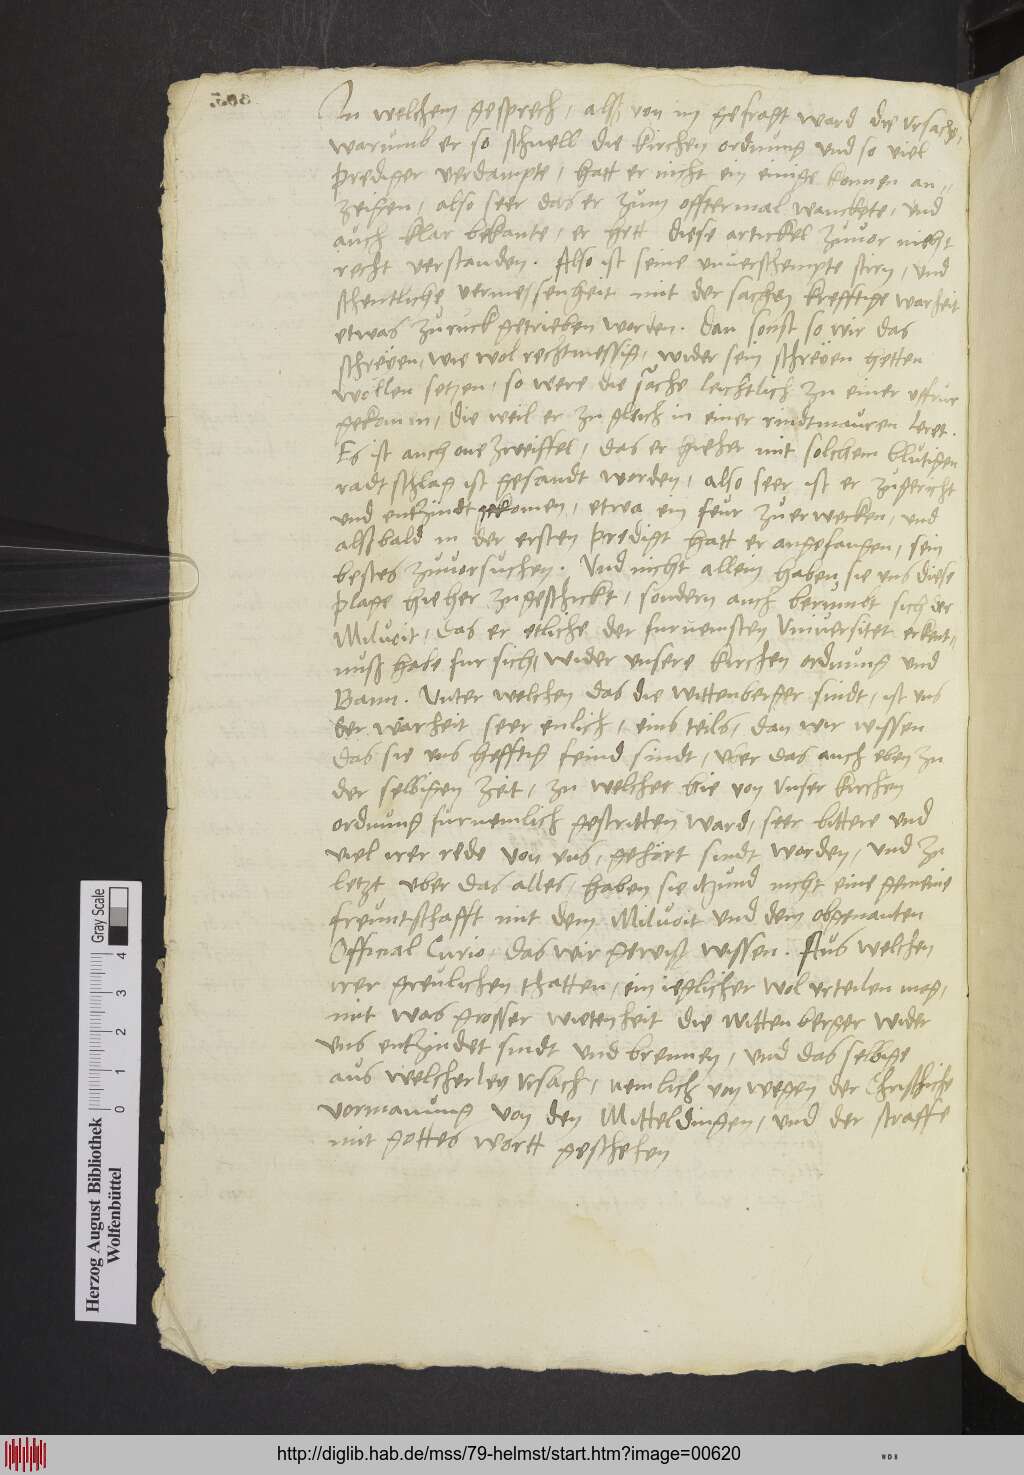 In welchem gesprech, alß von im gefragt ward die ursache,
warumb er so schnell die kirchen ordnung und so viel
prediger verdampte, hatt er nicht ein einige konnen an-
zeigen, also seer das er zum offtermal wanckete, und
auch klar bekante, er hett diese artickel zuvor nicht
recht verstanden. Also ist seine unverschempte stirn, und
schentliche vermessenheit mit der sachen krefftige warheit
etwas zuruck getrieben worden. Dan sonst so wir das
schreien, wie wol rechtmessig, wider sein schreien hetten
wöllen setzen, so were die sache leichtlich zu einer uffrur
gekomm, die weil er zu gleich in einer rindtmauren leret.
Es ist auch one zweiffel, das er hieher mit solchem blutigen
radtschlag ist gesandt worden, also seer ist er zugericht
und entzindt gekomen, etwa ein feur zu erwecken, und
alßbald in der ersten predigt hatt er angefangen, sein
bestes zuvorsuchen. Und nicht allein haben sie uns diese
plage hie her zugeschickt, sondern auch berumbt sich der
Milvoit, das er etliche der furnemsten Universitet erkent-
nuß habe fur sich, wider unsere kirchen ordnung und
Bann. Unter welchen das die wittenberger sindt, ist uns
der warheit seer enlich, eins teils, dan wir wissen
das sie uns hefftig feind sindt, uber das auch eben zu
der selbigen zeit, zu welcher hie von unser kirchen
ordnung furnemlich gestritten ward, seer bittere und
viel irer rede von uns, gehört sindt worden, und zu
letzt uber das alles, haben sie itzund nicht eine gemeine
freuntschafft mit dem Milvoit und dem obgenanten
Official Curio, das wir gewiß wissen. Aus welchen
irer greulichen thatten, ein ieglicher wol urteilen mag,
mit was grosser wietenheit die wittenberger wider
uns entzindet sindt und brennen, und das selbige
aus welcherley ursach, nemlich von wegen der Christliche
vormanung von den Mitteldingen, und der straffe
mit gottes wortt geschehen
Herzog August Bibliothek
Wolfenbüttel
Gray Scale
0 1 2 3 4
http://diglib.hab.de/mss/79-helmst/start.htm?image=00620